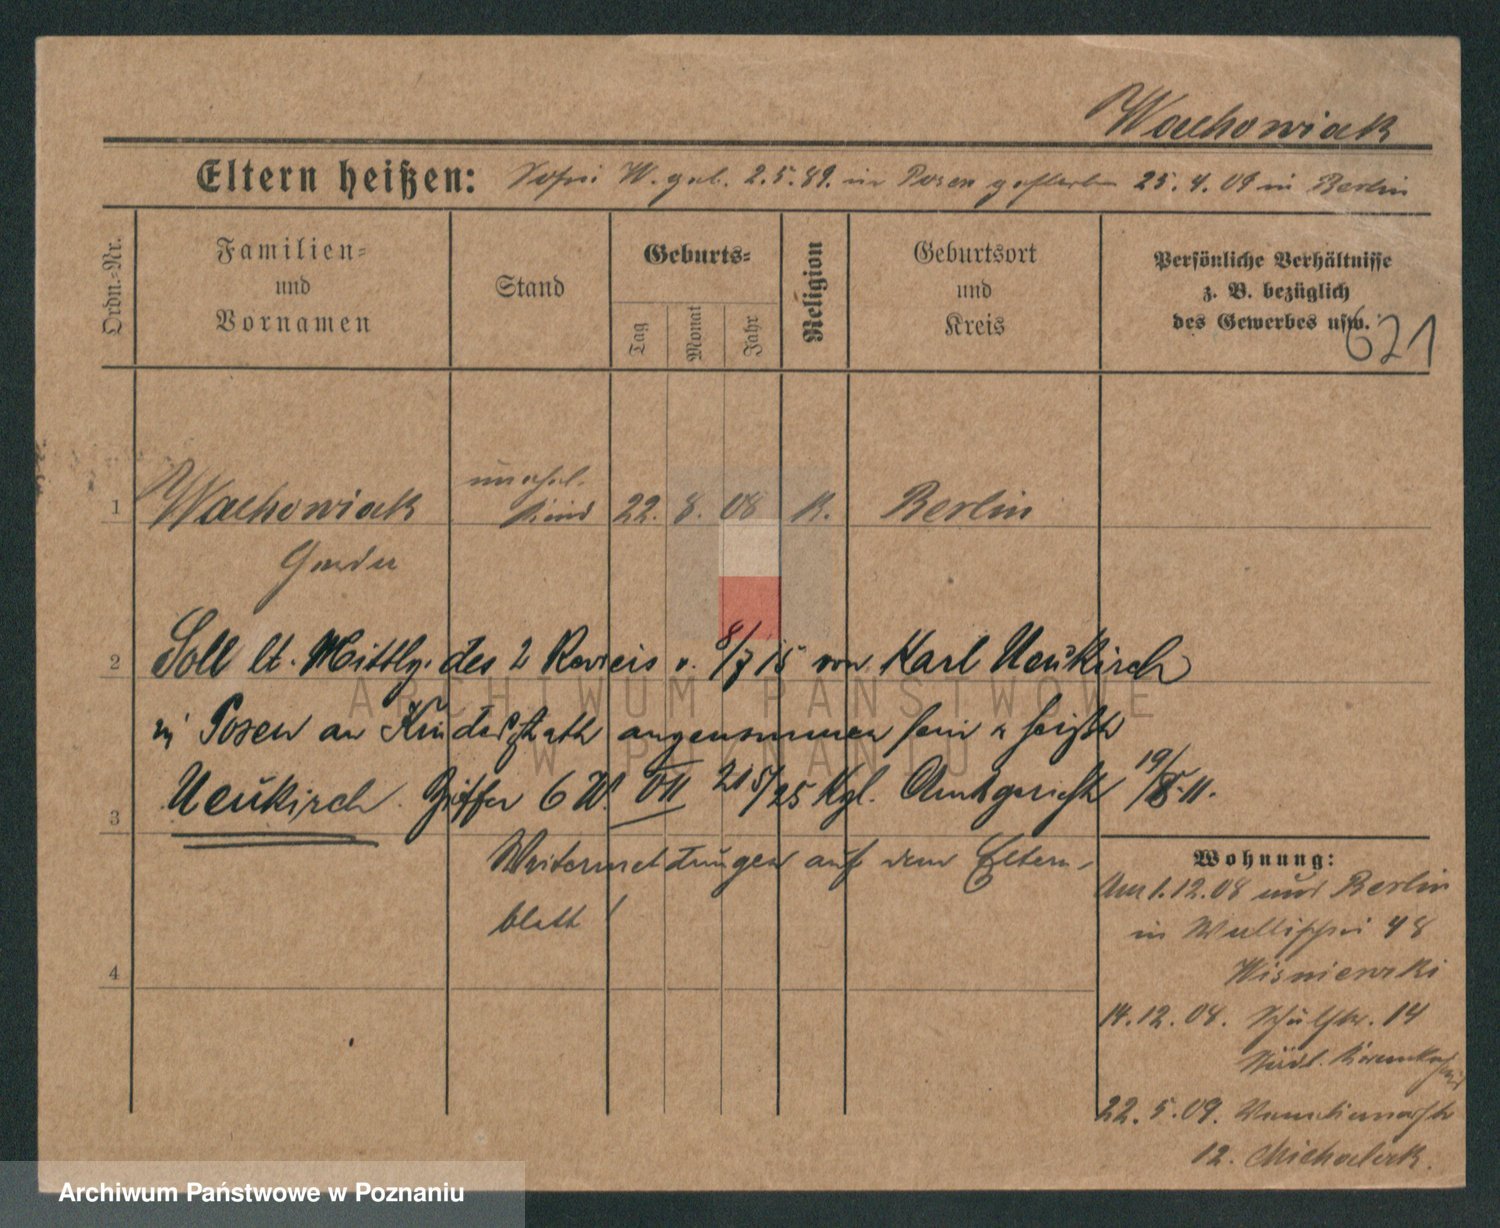 Wachowiak
Eltern heißen: Sofie W. geb. 2.5.89. in Posen gestorben 25.4.09 in Berlin
Ordn.-Nr.
Familien-
und
Vornamen
Stand
Geburts-
Tag
Monat
Jahr
Religion
Geburtsort
und
Kreis
Persönliche Verhältnisse
z. B. bezüglich
des Gewerbes usw.
621
1 Wachowiak unehel. Kind 22. 8. 08 K. Berlin
2 Soll lt. Mittlg. des 2 Reviers v. 8/7 15 von Karl Neukirch
in Posen an Kindesstatt angenommen sein u heißt
3 Neukirch. 6 W. VII 215/25 Kgl. Amtsgericht 19/8. 11.
Weitermeldungen auf dem Eltern-
blatt!
4
Wohnung:
Am 1.12.08 aus Berlin
in Wallischei 48
Wisniewski
14.12.08. Schulstr. 14
Städt. Krankenhaus
22.5.09.
12. Michalak.
ARCHIWUM PAŃSTWOWE
W POZNANIU
Archiwum Państwowe w Poznaniu